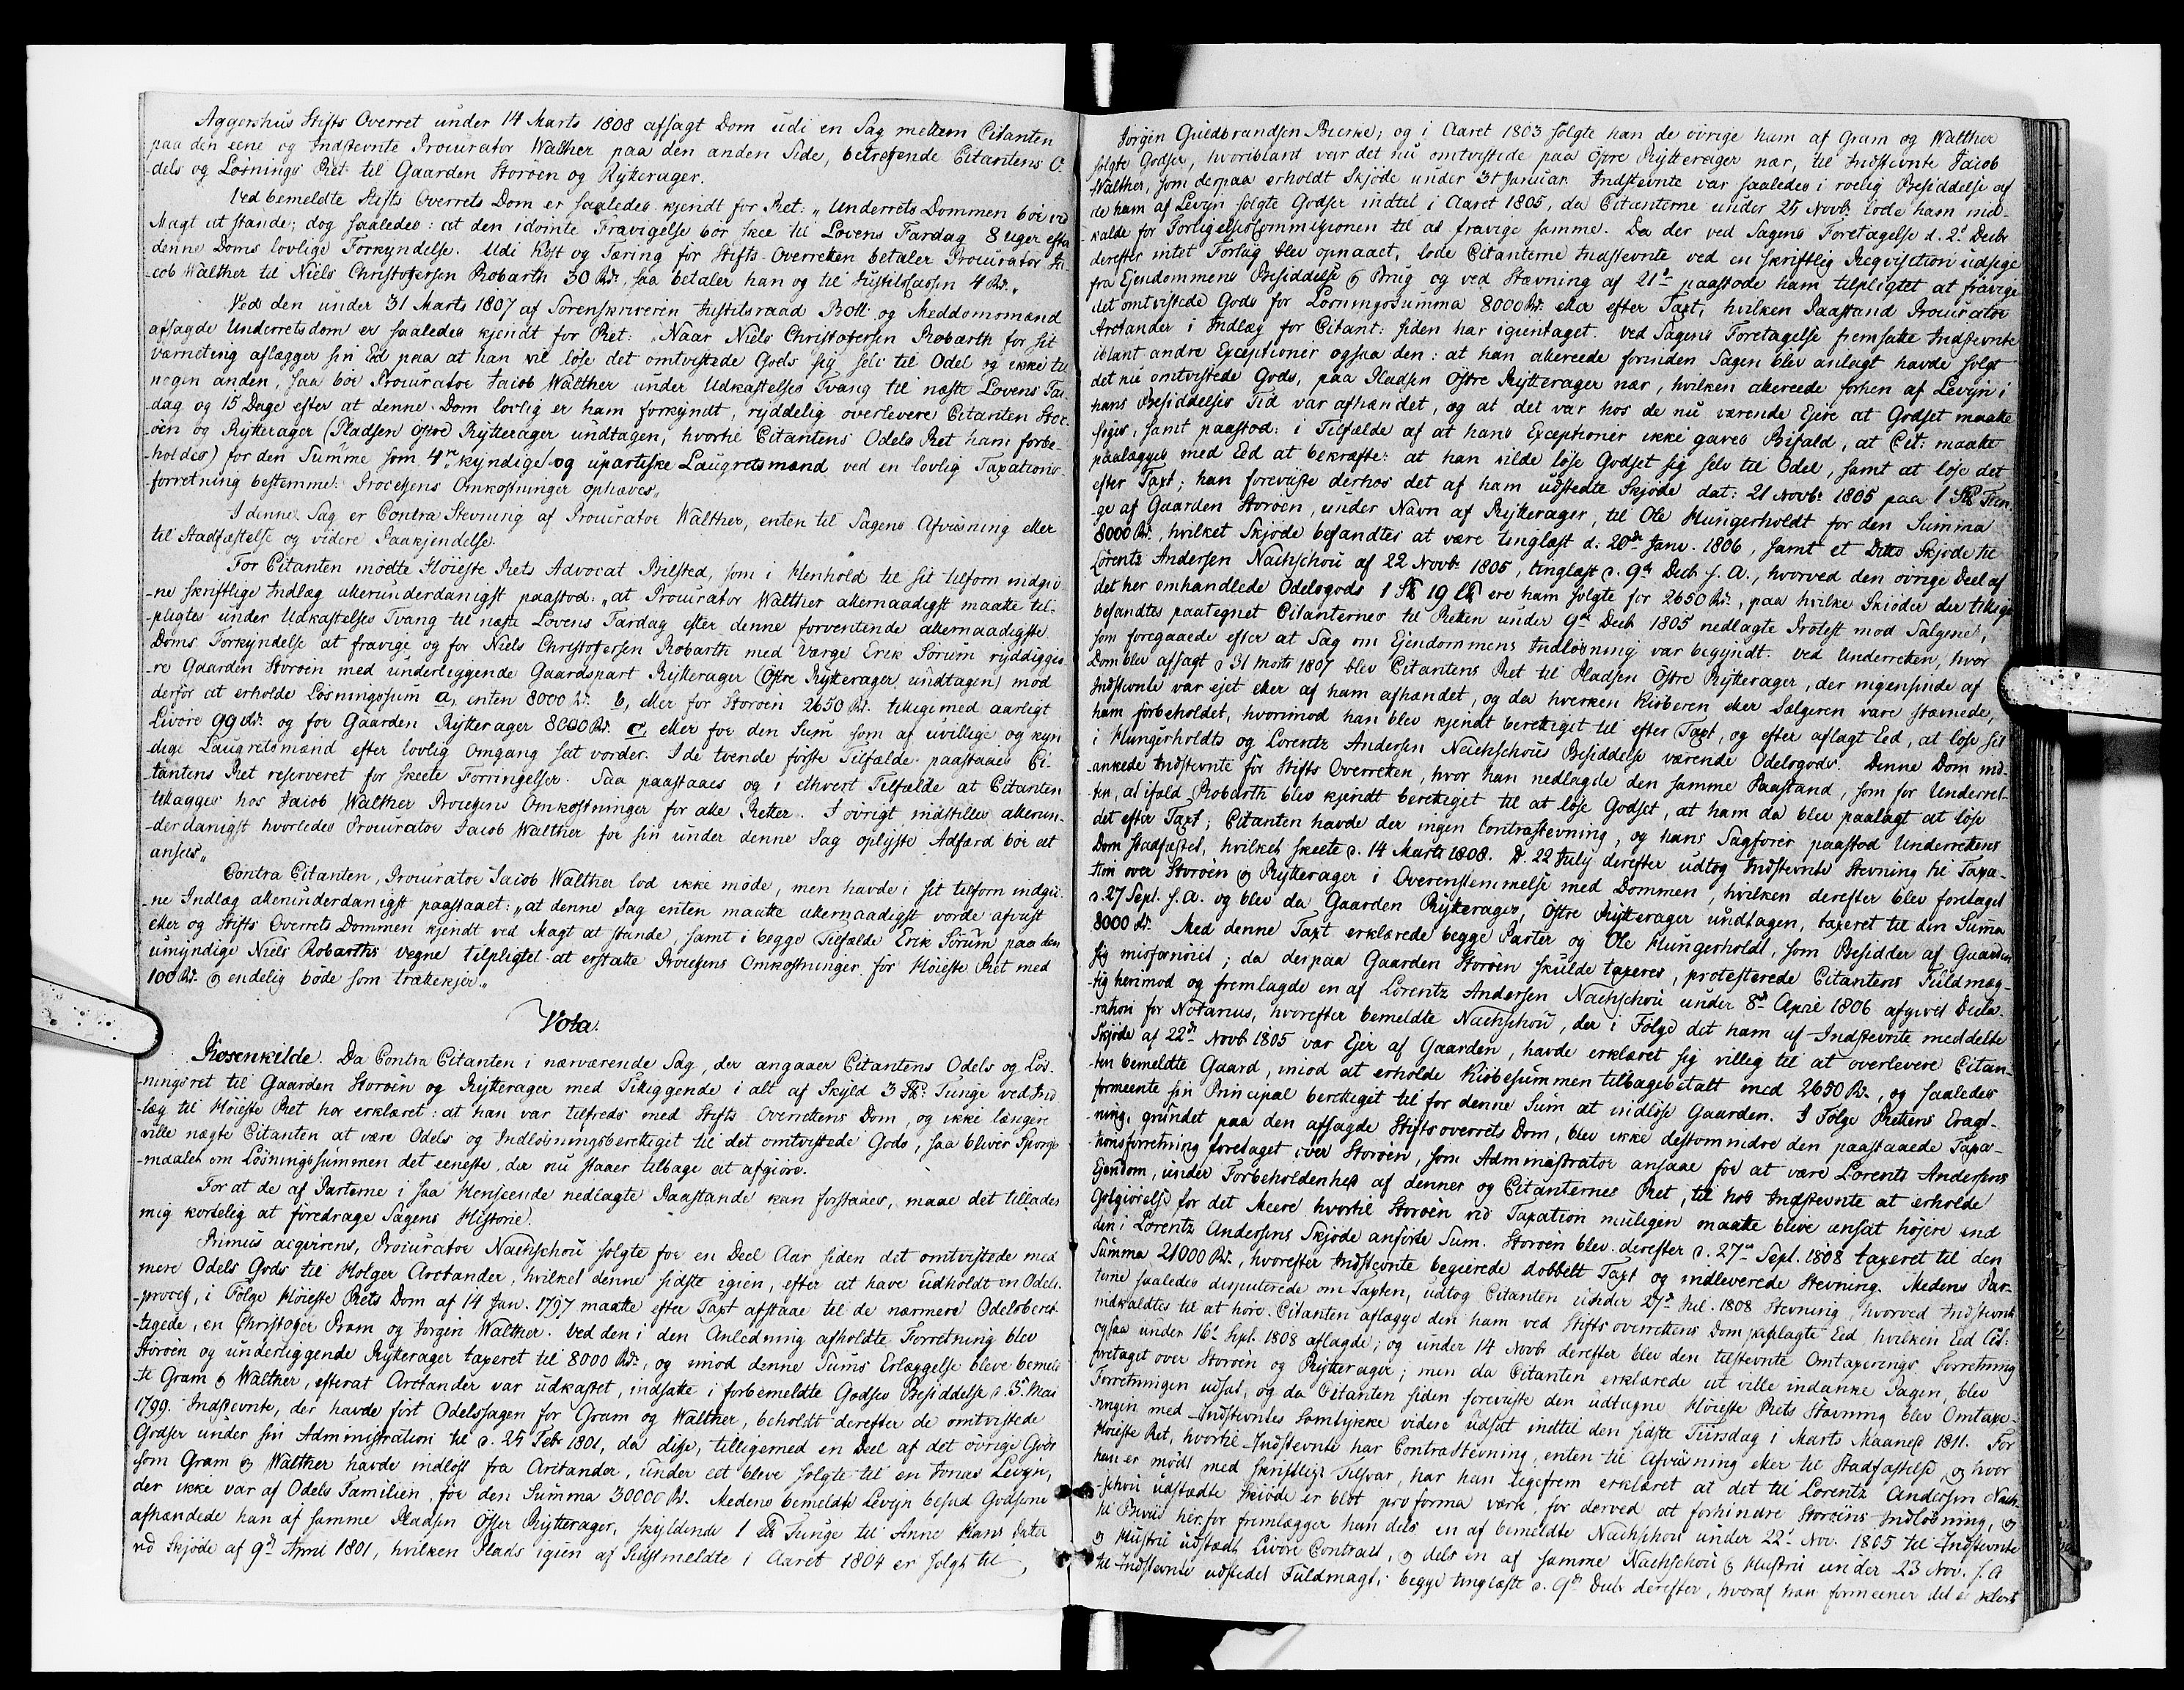 Aggershus Stifts Overret under 14 Marts 1808 afsagt Dom udi en Sag mellem Citanten
paa den eene og Indstevnte Procurator Walther paa den anden Side, betrefende Citantens O-
dels og Løsnings Ret til Gaarden Storöen og Rytterager.
Ved bemeldte Stifts Overrets Dom er saaledes kjendt for Ret: „Underrets Dommen bör ved
Magt at stande; dog saaledes: at den idömte Fravigelse bör skee til Lovens Fardag 8 Uger efter
denne Doms lovlige Forkyndelse. Udi Kost og Tæring for Stifts-Overretten betaler Procurator Ja-
cob Walther til Niels Christofersen Robarth 30 Rd., saa betaler han og til Justitskassen 4 Rd.„
Ved den under 31 Marts 1807 af Sorenskriveren Justitsraad Bull og Meddomsmænd
afsagde Underretsdom er saaledes kjendt for Ret: „Naar Niels Christofersen Robarth for sit
værneting aflægger sin Ed paa at han vil löse det omtvistede Gods sig selv til Odel og ikke til
nogen anden, saa bör Procurator Jacob Walther under Udkastelses Tvang til næste Lovens Far-
dag og 15 Dage efter at denne Dom lovlig er ham forkyndt, ryddelig overlevere Citanten Stor-
öen og Rytterager (Pladsen Östre Rytterager undtagen, hvortil Citantens Odels Ret ham forbe-
holdes) for den Summe som 4re kyndige og upartiske Laugretsmænd ved en lovlig Taxations-
forretning bestemme. Processens Omkostninger ophæves„
I denne Sag er Contra Stevning af Procurator Walther, enten til Sagens Afviisning eller
til Stadfæstelse og videre Paakjendelse.
For Citanten mødte Höieste Rets Advocat Bilsted, som i Henhold til sit tilforn indgiv-
ne skriftlige Indlæg allerunderdanigst paastod: „at Procurator Walther allernaadigst maatte til-
pligtes under Udkastelses Tvang til næste Lovens Fardag efter denne forventende allernaadigste
Doms Forkyndelse at fravige og for Niels Christofersen Robarth med Værge Erik Sorum ryddiggjö-
re Gaarden Storöen med underliggende Gaardspart Rytterager (Östre Rytterager undtagen) mod
derfor at erholde Løsningssum a, enten 8000 Rd. b, eller for Storöen 2650 Rd. tilligemed aarligt
Livöre 99 Rd. og for Gaarden Rytterager 8000 Rd. c, eller for den Sum som af uvillige og kyn
dige Laugretsmænd efter lovlig Omgang sat vorder. I de tvende förste Tilfælde paastaaes Ci-
tantens Ret reserveret for skeete Forringelser. Saa paastaaes og i ethvert Tilfælde at Citanten
tillægges hos Jacob Walther Processens Omkostninger for alle Retter. I övrigt indstilles allerun-
derdanigst hvorledes Procurator Jacob Walther for sin under denne Sag oplyste Adfærd bör at
ansees„
Contra Citanten, Procurator Jacob Walther lod ikke möde, men havde i sit tilforn indgiv-
ne Indlæg allerunderdanigst paastaaet: „at denne Sag enten maatte allernaadigst vorde afvist
eller og Stifts Overrets Dommen kjendt ved Magt at stande, samt i begge Tilfælde Erik Sörum paa den
umyndige Niels Robarths Vegne tilpligtet at erstatte Processens Omkostninger for Höieste Ret med
100 Rd. og endelig böde som trættekjer.„
Vota.
Rosenkilde. Da Contra Citanten i nærværende Sag, der angaaer Citantens Odels og Lös-
ningsret til Gaarden Storöen og Rytterager med Tilliggende i alt af Skyld 3 Sk: Tunge ved Ind
læg til Höieste Ret har erklæret: at han var tilfreds med Stifts Overrettens Dom, og ikke længere
ville nægte Citanten at være Odels og Indlösningsberettiget til det omtvistede Gods, saa bliver Spörgs-
maalet om Lösningssummen det eeneste, der nu staaer tilbage at afgiöre.
For at de af Parterne i saa Henseende nedlagte Paastande kan forstaaes, maae det tillades
mig kortelig at foredrage Sagens Historie.
Primus acqvirens, Procurator Nachschou solgte for en Deel Aar siden det omtvistede med
mere Odels Gods til Holger Arctander, hvilket denne sidste igien, efter at have udholdt en Odels-
process, i Fölge Höieste Rets Dom af 14 Jan. 1797 maatte efter Taxt afstaae til de nærmere Odelsberet-
tigede, en Christofer Gram og Jorgen Walther. Ved den i den Anledning afholdte Forretning blev
Storöen og underliggende Rytterager taxeret til 8000 Rd., og imod denne Sums Erlæggelse bleve bemeld-
te Gram og Walther, efterat Arctander var udkastet, indsatte i forbemeldte Godses Besiddelse d. 3d Mai
1799. Indstevnte, der havde fört Odelssagen for Gram og Walther, beholdt derefter de omtvistede
Godser under sin Administration til d. 25 Febr 1801, da disse, tilligemed en Deel af det övrige Gods
som Gram og Walther havde indlöst fra Arctander, under eet bleve solgte til en Jonas Levyn,
der ikke var af Odels Familien, for den Summa 30000 Rd. Medens bemeldte Levyn besad Godserne
afhændede han af samme Pladsen Öster Rytterager, skyldende 1 Tunge til Anne Hans dater
ved Skjöde af 9d April 1801, hvilken Plads igien af Sidstmeldte i Aaret 1804 er solgt til
Jorgen Guldbrandsen Bierke; og i Aaret 1803 solgte han de övrige ham af Gram og Walther
solgte Godser, hvoriblant var det nu omtvistede paa Östre Rytterager nær, til Indstevnte Jacob
Walther, som derpaa erholdt Skjöde under 31 Januar. Indstevnte var saaledes i roelig Besiddelse af
de ham af Levyn solgte Godser indtil i Aaret 1805, da Citanterne under 25 Novb. lode ham ind-
kalde for Forligelses Commissionen til at fravige samme. Da der ved Sagens Foretagelse d. 2d Decbr
derefter intet Forliig blev opnaaet, lode Citanterne Indstevnte ved en skriftlig Reqvisition udsige
fra Ejendommens Besiddelse og Brug og ved Stævning af 21d paastode ham tilpligtet at fravige
det omtvistede Gods for Lösningssumma 8000 Rd. eller efter Taxt, hvilken Paastand Procurator
Arctander i Indlæg for Citant: siden har igientaget. Ved Sagens Foretagelse fremsatte Indstevnte
iblant andre Exceptioner ogsaa den: at han allereede forinden Sagen blev anlagt havde solgt
det nu omtvistede Gods, paa Pladsen Östre Rytterager nær, hvilken allereede forhen af Levyn i
hans Besiddelses Tid var afhændet, og at det var hos de nu værende Ejere at Godset maatte
söges, samt paastod: i Tilfælde af at hans Exceptioner ikke gaves Bifald, at Cit: maatte
paalægges med Eed at bekræfte: at han vilde löse Godset sig selv til Odel, samt at löse det
efter Taxt; han foreviiste derhos det af ham udstedte Skjöde dat: 21 Novbr 1805 paa 1 Sk Tun
ge af Gaarden Storöen, under Navn af Rytterager, til Ole Hungerholdt for den Summa
8000 Rd., hvilket Skjöde befandtes at være tinglæst d: 20de Janv. 1806, samt et Ditto Skjöde til
Lorentz Andersen Nachschou af 22 Novbr 1805, tinglæst d. 9de Decb s. A., hvorved den övrige Deel af
det her omhandlede Odelsgods 1 Sk 19 ere ham solgte for 2650 Rd., paa hvilke Skiöder der tillige
befandtes paategnet Citanternes til Retten under 9de Decb 1805 nedlagte Protest mod Salgene,
som foregaaede efter at Sag om Ejendommens Indlösning var begyndt. Ved Underretten, hvor
Dom blev afsagt d 31 Marts 1807 blev Citantens Ret til Pladsen Östre Rytterager, der ingensinde af
Indstevnte var ejet eller af ham afhændet, og da hverken Kiöberen eller Sælgeren vare stævnede,
ham forbeholdet, hvorimod han blev kjendt berettiget til efter Taxt, og efter aflagt Eed, at löse sit
i Hungerholdts og Lorentz Andersen Nachschous Besiddelse værende Odelsgods. Denne Dom ind-
ankede Indstevnte for Stifts Overretten, hvor han nedlagde den samme Paastand, som for Underret-
ten, at ifald Robarth blev kjendt berettiget til at löse Godset, at ham da blev paalagt at löse
det efter Taxt; Citanten havde der ingen Contrastevning, og hans Sagförer paastod Underrettens
Dom stadfæstet, hvilket skeete d. 14 Marts 1808. D. 22 July derefter udtog Indstevnte Stevning til Taxa-
tion over Storöen og Rytterager i Overenstemmelse med Dommen, hvilken derefter blev foretaget
d. 27 Sept. s. A. og blev da Gaarden Rytterager, Östre Rytterager undtagen, taxeret til den Summa
8000 Rd. Med denne Taxt erklærede begge Parter og Ole Hungerholdt, som Besidder af Gaarden
sig misfornöiet; da derpaa Gaarden Storöen skulde taxeres, protesterede Citantens Fuldmæg-
tig herimod og fremlagde en af Lorentz Andersen Nachschou under 8d April 1806 afgivet Decla-
ration for Notarius, hvorefter bemeldte Nachschou, der i Fölge det ham af Indstevnte meddelte
Skjöde af 22d Novb 1805 var Ejer af Gaarden, havde erklæret sig villig til at overlevere Citan-
ten bemeldte Gaard, imod at erholde Kiöbesummen tilbagebetalt med 2650 Rd., og saaledes
formeente sin Principal berettiget til for denne Sum at indlöse Gaarden. I Fölge Rettens Eragt-
ning, grundet paa den afsagde Stiftsoverrets Dom, blev ikke destomindre den paastaaede Taxa-
tionsforretning foretaget over Storöen, som Administrator ansaae for at være Lorents Andersens
Ejendom, under Forbeholdenhed af dennes og Citanternes Ret, til hos Indstevnte at erholde
Godtgiörelse for det Meere hvortil Storöen ved Taxation muligen maatte blive ansat höjere end
den i Lorentz Andersens Skjöde anförte Sum. Storöen blev derefter d. 27de Sept. 1808 taxeret til den
Summa 21000 Rd., hvorefter Indstevnte begierede dobbelt Taxt og indleverede Stevning. Medens Par-
terne saaledes disputerede om Taxten, udtog Citanten under 27d Jul. 1808 Stevning, hvorved Indstevnte
indkaldtes til at höre Citanten aflægge den ham ved Stifts overrettens Dom paalagte Eed, hvilken Eed Cit:
ogsaa under 16d Sept. 1808 aflagde; og under 14 Novbr derefter blev den tilstevnte Omtaxerings Forretning
foretaget over Storöen og Rytterager; men da Citanten erklærede at ville indanke Sagen, blev
Forretningen udsat, og da Citanten siden foreviiste den udtagne Höieste Rets Stævning blev Omtaxe-
ringen med Indstevntes Samtykke videre udsat indtil den sidste Tiirsdag i Marts Maaned 1811. For
Höieste Ret, hvortil Indstevnte har Contra Stevning, enten til Afviisning eller til Stadfæstelse, og hvor
han er mödt med skriftligt Tilsvar, har han ligefrem erklæret at det til Lorentz Andersen Nach-
schou udstædte Skiöde er blot pro forma værk, for derved at forhindre Storöens Indlösning, og
til Beviis herfor fremlægger han dels en af bemeldte Nachschou under 22d Nov. 1805 til Indstevnte
og Hustru udstædt Livöre Contract, og dels en af samme Nachschou og Hustru under 23 Nov. s. A
til Indstevnte udstedet Fuldmagt, begge tinglæste d. 9de Decbr derefter, hvoraf han formeener det er klart